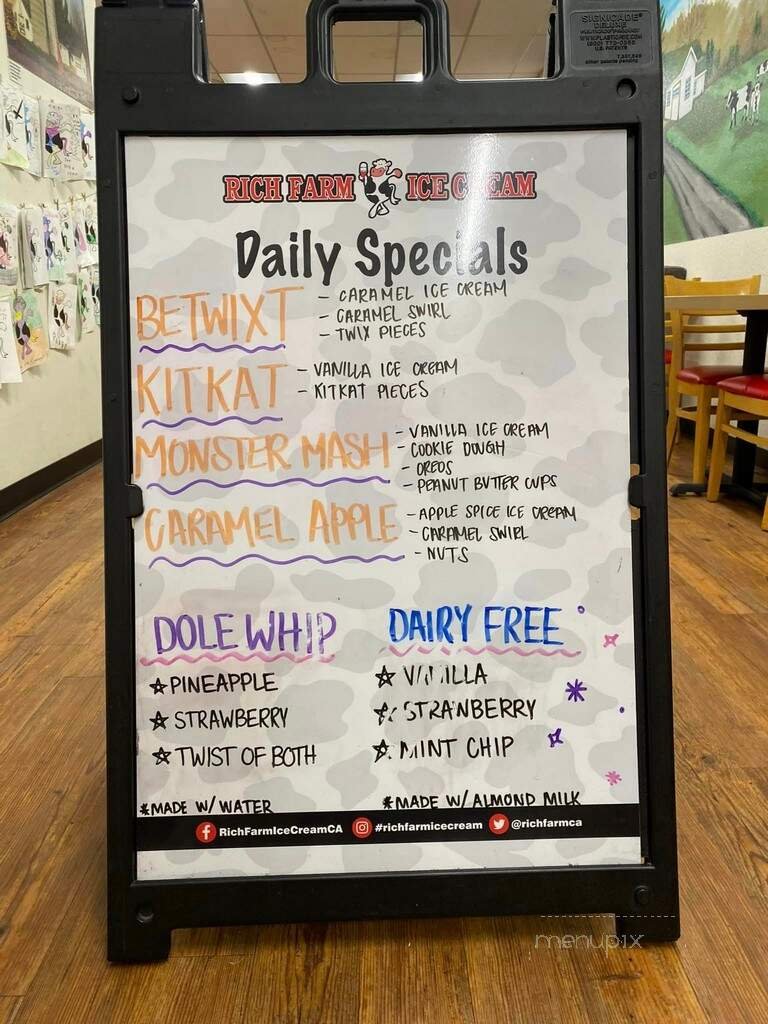 SIGNICADE®
DELUXE
WWW.PLASTICADE.COM
(800) 772-0355
U.S. PATENTS
other patents pending
RICH FARM ICE CREAM
Daily Specials
BETWIXT
- CARAMEL ICE CREAM
- CARAMEL SWIRL
- TWIX PIECES
KITKAT
- VANILLA ICE CREAM
- KITKAT PIECES
MONSTER MASH
- VANILLA ICE CREAM
- COOKIE DOUGH
- OREOS
- PEANUT BUTTER CUPS
CARAMEL APPLE
- APPLE SPICE ICE CREAM
- CARAMEL SWIRL
- NUTS
DOLE WHIP
☆ PINEAPPLE
☆ STRAWBERRY
☆ TWIST OF BOTH
*MADE W/ WATER
DAIRY FREE
☆ VANILLA
☆ STRAWBERRY
☆ MINT CHIP
*MADE W/ ALMOND MILK
RichFarmIceCreamCA #richfarmicecream @richfarmca
menupix